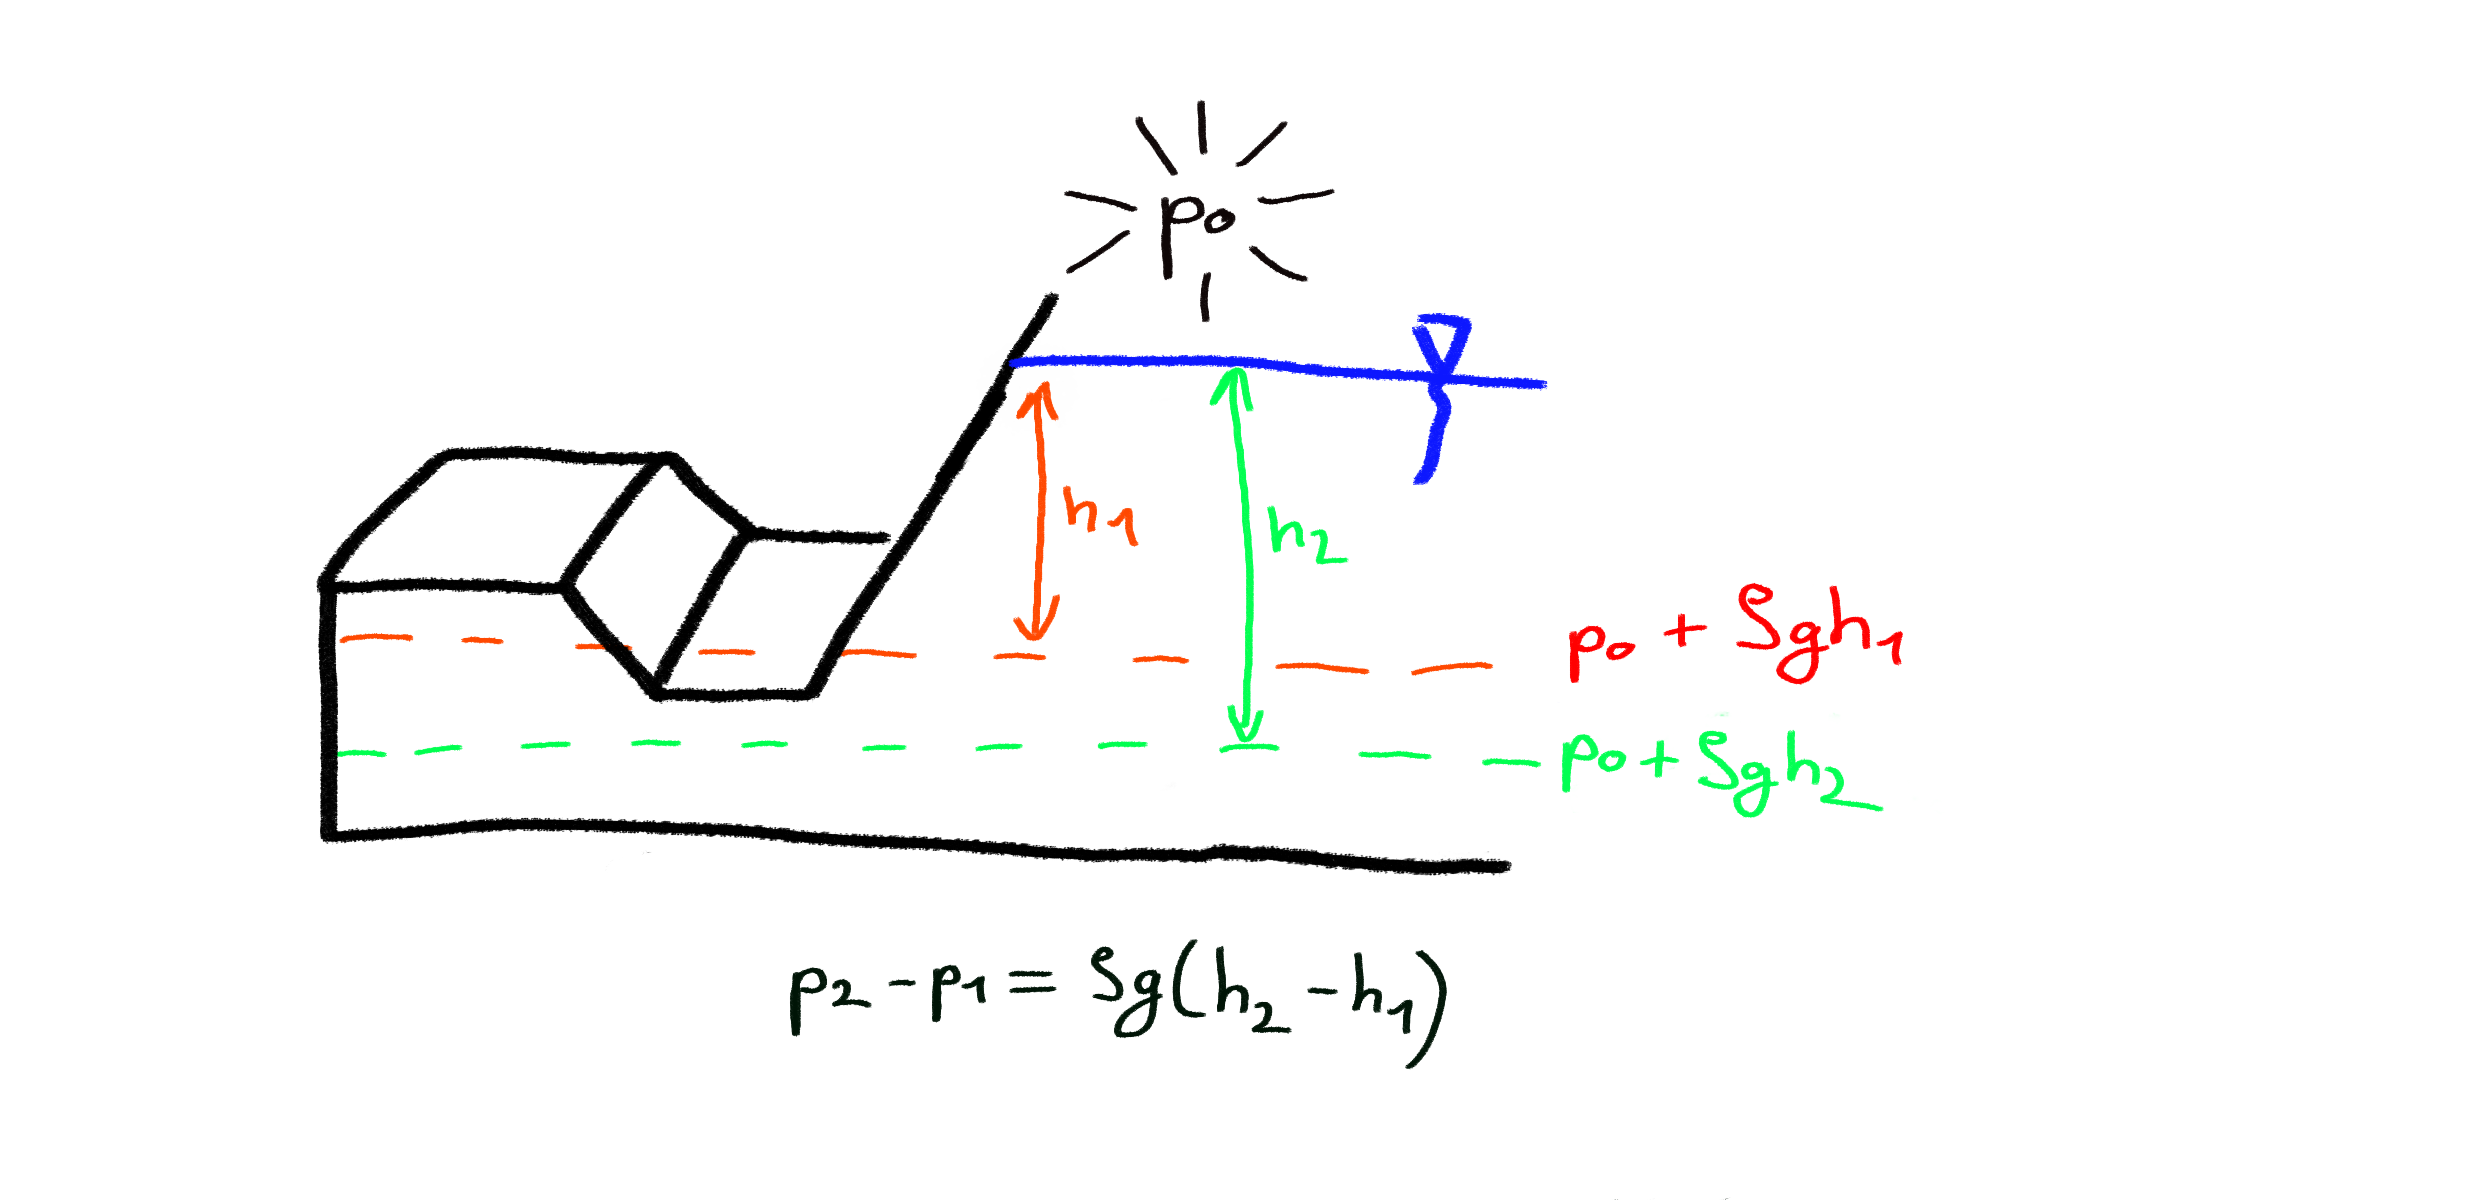 p₀
h₁
h₂
p₀ + ρgh₁
p₀ + ρgh₂
p₂ - p₁ = ρg(h₂ - h₁)